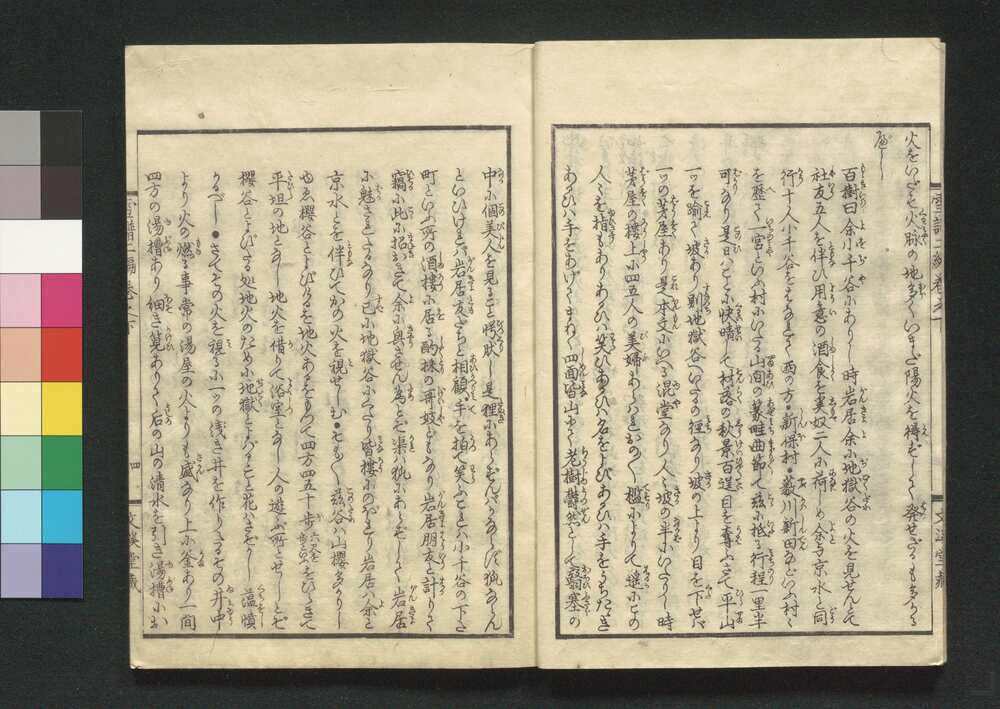 火をいだせども火脉の地多くいまだ陽火を得ずして発せざるも多かる
べし
百樹曰余小千谷にありし時岩居余に地獄谷の火を見せんとて
社友五人を伴ひ用意の酒食を奚奴二人に荷しめ余与京水と同
行十人小千谷をはなれて西の方●新保村●薮川新田などいふ村々
を歴て一宮といふ村にいたる山間の篆畦曲節して茲に抵る行程一里半
可りなり是日ことに快晴して村落の秋景百逞目を奪ふさて平山
一ツを踰て坡あり則地獄谷へいたるの径なり坡の上より目を下せば
一ツの茅屋あり是本文にいへる混堂なり人々坡の半にいたりし時
茅屋の楼上に四五人の美婦あらはれおの〳〵檻によりて遥にこの
人々を指もありあるひは笑ひあるひは名をよびあるひは手をうちたゝき
あるひは手をあげてまねく四面皆山にて老樹鬱然として翳塞の
中に個美人を見ること愕然し是狸にあらずんばかならず狐ならん
といひければ岩居友だちと相顧て手を指て笑ふこれは小千谷の下た
町といふ所の酒楼に居る酌採の哥妓どもなり岩居朋友と計りて
竊に此に招おきて余に興させん為とぞ渠は狐にあらずして岩居
に魅されたるなり已に地獄谷にくだり皆楼にのぼり岩居は余と
京水とを伴ひてかの火を視せしむ●そも〳〵茲谷は山桜多かりし
ゆゑ桜谷とよびけるを地火あるをもつて四方四五十歩六尺を歩といふをひらきて
平坦の地となし地火を借りて浴室となし人の遊ぶ所とせしとぞ
桜谷とよびたる処地火のために地獄とよばるゝこと花はさぞかし薀憤
かるべし●さてその火を視るに一ツの浅き井を作りたるその井中
より火の燃る事常の湯屋の火よりも盛なり上に釜あり一間
四方の湯槽あり細き筧ありて后の山の清水を引き湯槽にお
雪譜二編巻之
四
文溪堂蔵